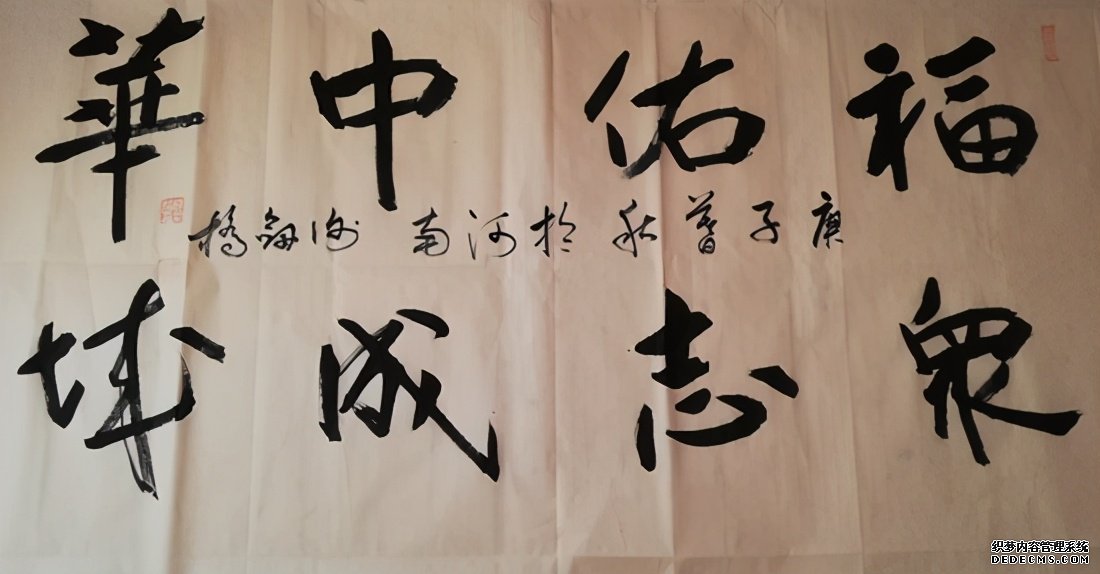 福佑中華
庚子暮秋於河南 橋
眾志成城
织梦内容管理系统
DEDECMS.COM